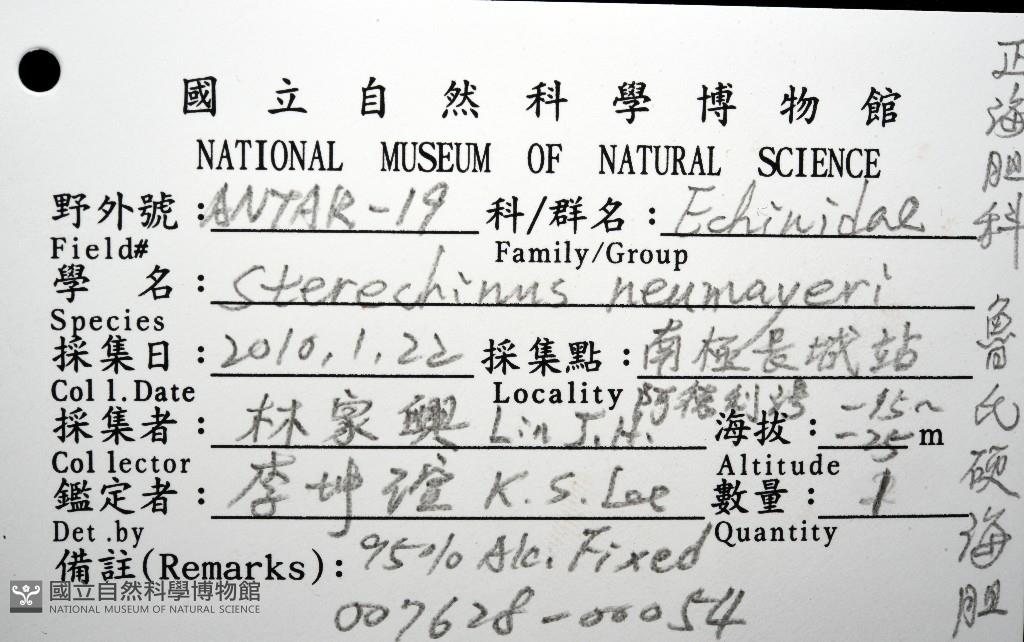 國立自然科學博物館
NATIONAL MUSEUM OF NATURAL SCIENCE
野外號：ANTAR-19 科/群名：Echinidae
Field# Family/Group
學名：Sterechinus neumayeri
Species
採集日：2010.1.22 採集點：南極長城站
Coll.Date Locality 阿德利灣
採集者：林家興 Lin J.H. 海拔：-15~-25 m
Collector Altitude
鑑定者：李坤瑄 K.S. Lee 數量：1
Det.by Quantity
備註(Remarks)：95% Alc. Fixed
007628-00054
正海胆科 魯氏硬海胆
國立自然科學博物館
NATIONAL MUSEUM OF NATURAL SCIENCE